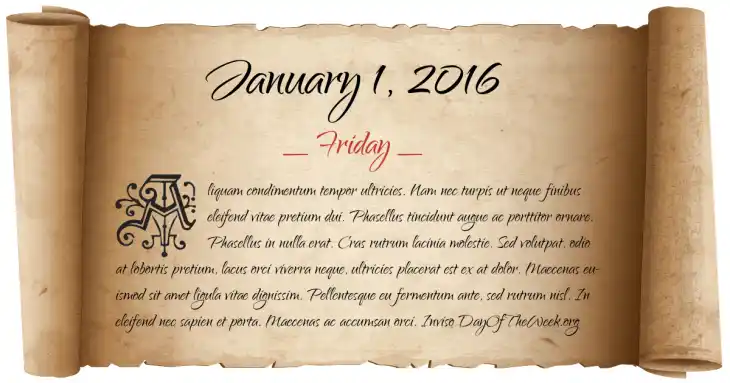 January 1, 2016
__ Friday __
Aliquam condimentum tempor ultricies. Nam nec turpis ut neque finibus
eleifend vitae pretium dui. Phasellus tincidunt augue ac porttitor ornare.
Phasellus in nulla erat. Cras rutrum lacinia molestie. Sed volutpat, odio
at lobortis pretium, lacus orci viverra neque, ultricies placerat est ex at dolor. Maecenas eu-
ismod sit amet ligula vitae dignissim. Pellentesque eu fermentum ante, sed rutrum nisl. In
eleifend nec sapien et porta. Maecenas ac accumsan orci. Inviso DayOfTheWeek.org